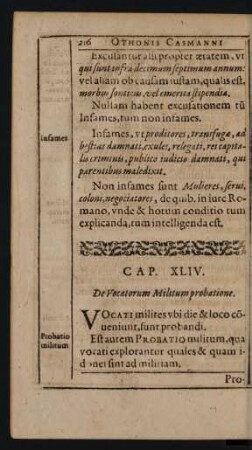 216 OTHONIS CASMANNI
Excusantur alii propter ætatem, vt
qui sunt infra decimum septimum annum:
vel aliam ob causam iustam, qualis est,
morbus sonticus, vel emerita stipendia.
Nullam habent excusationem tũ
Infames, tum non infames.
Infames
Infames, vt proditores, transfugæ, ad
bestias damnati, exules, relegati, rei capita-
lis criminis, publico iudicio damnati, qui
parentibus maledixit.
Non infames sunt Mulieres, serui,
coloni, negociatores, de quib. in iure Ro-
mano, vnde & horum conditio tum
explicanda, tum intelligenda est.
CAP. XLIV.
De Vocatorum Militum probatione.
VOCATI milites vbi die & loco cõ-
ueniunt, sunt probandi.
Probatio
militum
Est autem PROBATIO militum, qua
vocati explorantur quales & quam i-
donei sint ad militiam.
Pro-